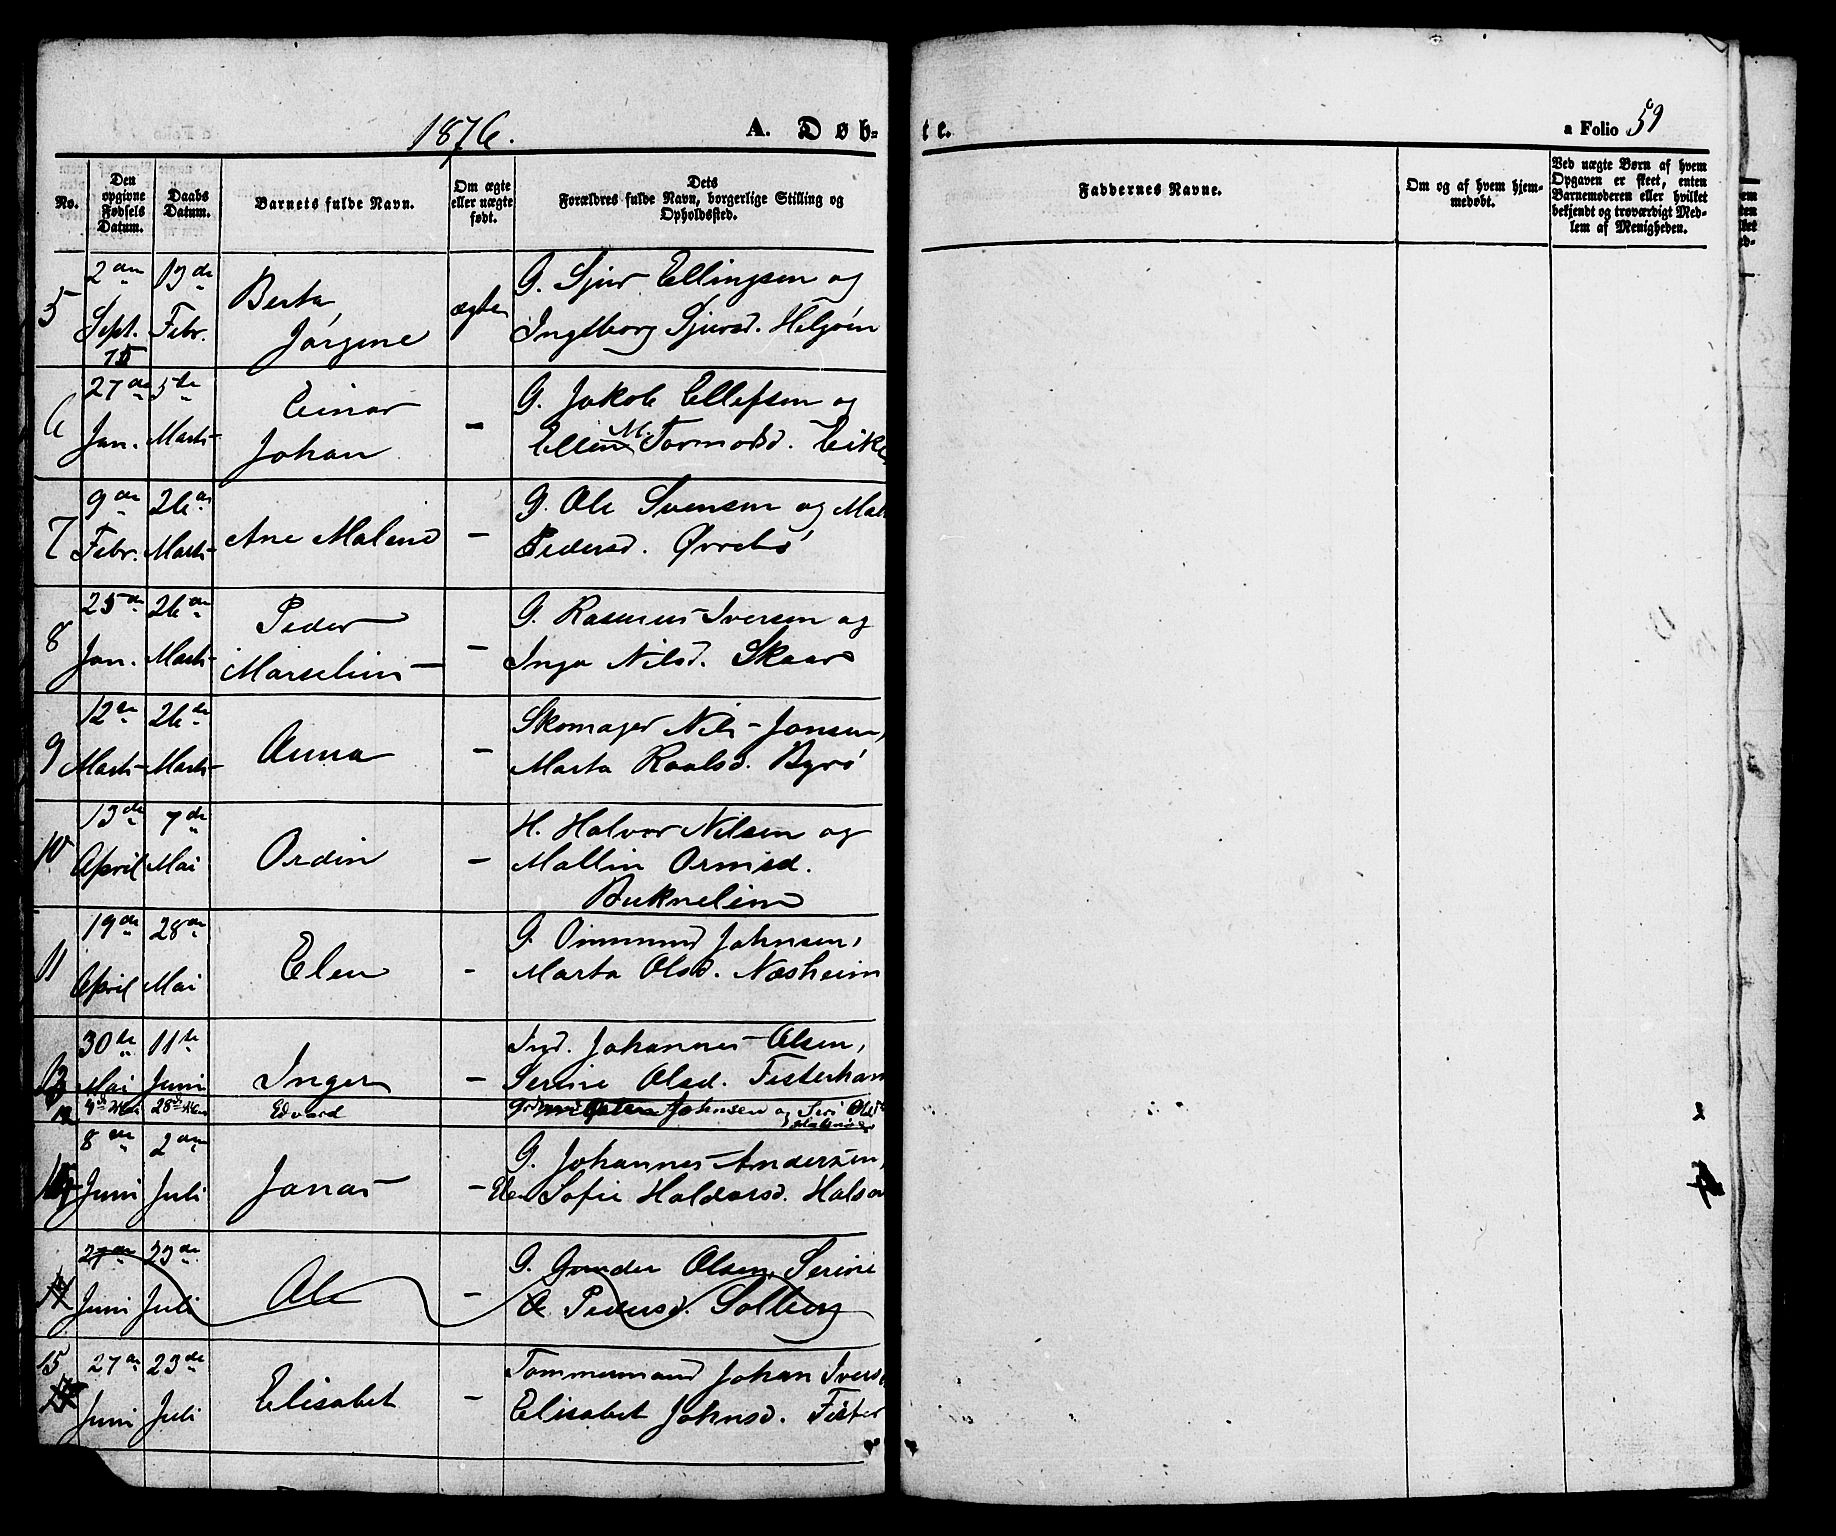 1876.
A. Døb-
te.
a Folio 59
No.
Den
opgivne
Fødsels
Datum.
Daabs
Datum.
Barnets fulde Navn.
Om ægte
eller uægte
født.
Dets
Forældres fulde Navn, borgerlige Stilling og
Opholdssted.
Faddernes Navne.
Om og af hvem hjem-
medøbt.
Ved uægte Børn af hvem
Opgaven er skeet, enten
Barnemoderen eller hvilket
bekjendt og troværdigt Med-
lem af Menigheden.
5
2den
Sept.
75
13de
Febr.
Berta
Jørgine
ægte
G. Sjur Ellingsen og
Ingeborg Sjursd. Helgøen
6
27de
Jan.
5te
Marts
Einar
Johan
-
G. Jakob Ellefsen og
Ellen M. Tormodsd. Eike
7
9de
Febr.
26de
Marts
Ane Malene
-
G. Ole Svensen og
Pedersd. Øvrebø
8
25de
Jan.
26de
Marts
Peder
Marselius
-
G. Rasmus Iversen og
Inga Nilsd. Skaar
9
12te
Marts
26de
Marts
Anna
-
Skomager Nils Jonsen,
Marta Roalsd. Byrø
10
13de
April
7de
Mai
Ordin
-
H. Halvor Nilsen og
Mallin Ormsd.
Buknelien
11
19de
April
28de
Mai
Elen
-
G. Ommund Johnsen,
Marta Olsd. Næsheim
13
30te
Mai
11te
Juni
Inger
-
Ind. Johannes Olsen,
Serine Olsd. Fisterhavn
12
4de Mai
28de Mai
Edvard
Johnsen og Siri Olsd.
8de
Juni
2den
Juli
Jonas
-
G. Johannes Andersen,
Elen Sofie Haldorsd. Halsne
14
27de
Juni
23de
Juli
Ole
-
G. Gunder Olsen, Serine
Pedersd. Solberg
15
27de
Juni
23de
Juli
Elisabet
-
Tømmermand Johan Ivers
Elisabet Johnsd. Fister